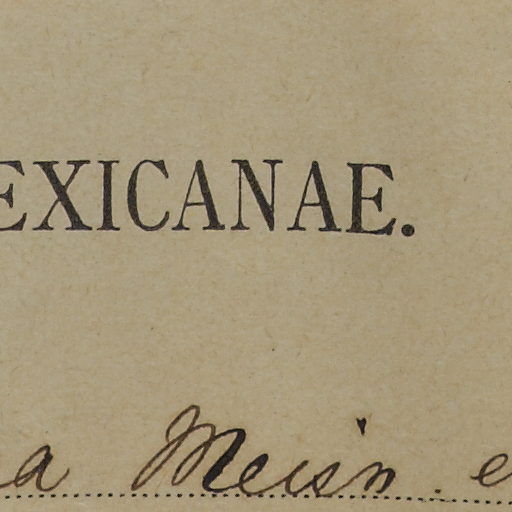 EXICANAE.
a Meisn. e